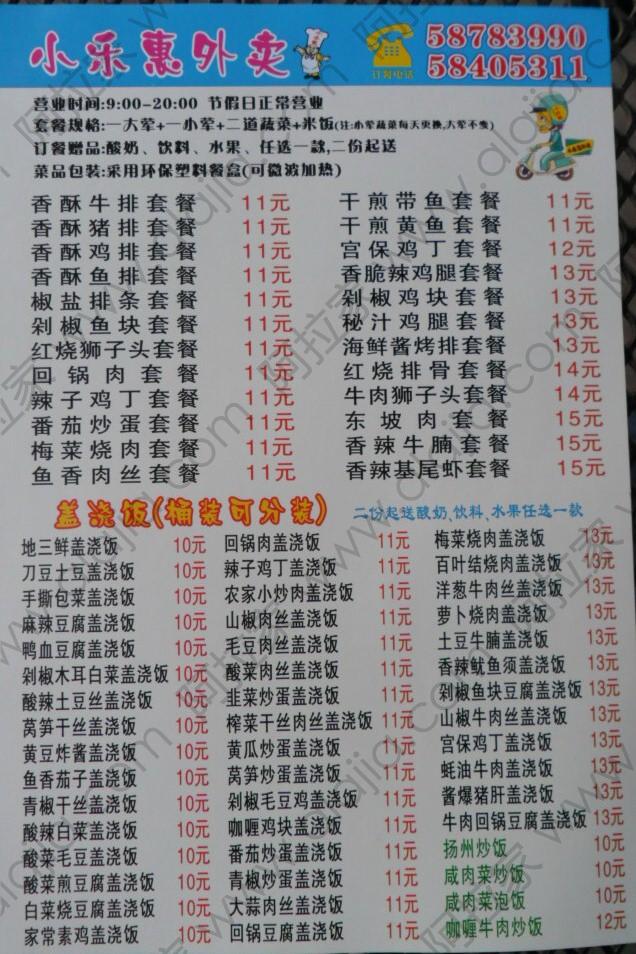 小乐惠外卖
订餐电话
58783990
58405311
营业时间:9:00-20:00 节假日正常营业
套餐规格:一大荤+一小荤+二道蔬菜+米饭(注:小荤蔬菜每天更换,大荤不变)
订餐赠品:酸奶、饮料、水果、任选一款,二份起送
菜品包装:采用环保塑料餐盒(可微波加热)
香酥牛排套餐 11元
香酥猪排套餐 11元
香酥鸡排套餐 11元
香酥鱼排套餐 11元
椒盐排条套餐 11元
剁椒鱼块套餐 11元
红烧狮子头套餐 11元
回锅肉套餐 11元
辣子鸡丁套餐 11元
番茄炒蛋套餐 11元
梅菜烧肉套餐 11元
鱼香肉丝套餐 11元
干煎带鱼套餐 11元
干煎黄鱼套餐 11元
宫保鸡丁套餐 12元
香脆辣鸡腿套餐 13元
剁椒鸡块套餐 13元
秘汁鸡腿套餐 13元
海鲜酱烤排套餐 13元
红烧排骨套餐 14元
牛肉狮子头套餐 14元
东坡肉套餐 15元
香辣牛腩套餐 15元
香辣基尾虾套餐 15元
盖浇饭(桶装可分装)
二份起送酸奶、饮料、水果任选一款
地三鲜盖浇饭 10元
刀豆土豆盖浇饭 10元
手撕包菜盖浇饭 10元
麻辣豆腐盖浇饭 10元
鸭血豆腐盖浇饭 10元
剁椒木耳白菜盖浇饭 10元
酸辣土豆丝盖浇饭 10元
莴笋干丝盖浇饭 10元
黄豆炸酱盖浇饭 10元
鱼香茄子盖浇饭 10元
青椒干丝盖浇饭 10元
酸辣白菜盖浇饭 10元
酸菜毛豆盖浇饭 10元
酸菜煎豆腐盖浇饭 10元
白菜烧豆腐盖浇饭 10元
家常素鸡盖浇饭 10元
回锅肉盖浇饭 11元
辣子鸡丁盖浇饭 11元
农家小炒肉盖浇饭 11元
山椒肉丝盖浇饭 11元
毛豆肉丝盖浇饭 11元
酸菜肉丝盖浇饭 11元
韭菜炒蛋盖浇饭 11元
榨菜干丝肉丝盖浇饭 11元
黄瓜炒蛋盖浇饭 11元
莴笋炒蛋盖浇饭 11元
剁椒毛豆鸡盖浇饭 11元
咖喱鸡块盖浇饭 11元
番茄炒蛋盖浇饭 11元
青椒炒蛋盖浇饭 11元
大蒜肉丝盖浇饭 11元
回锅豆腐盖浇饭 11元
梅菜烧肉盖浇饭 13元
百叶结烧肉盖浇饭 13元
洋葱牛肉丝盖浇饭 13元
萝卜烧肉盖浇饭 13元
土豆牛腩盖浇饭 13元
香辣鱿鱼须盖浇饭 13元
剁椒鱼块豆腐盖浇饭 13元
山椒牛肉丝盖浇饭 13元
宫保鸡丁盖浇饭 13元
蚝油牛肉盖浇饭 13元
酱爆猪肝盖浇饭 13元
牛肉回锅豆腐盖浇饭 13元
扬州炒饭 10元
咸肉菜炒饭 10元
咸肉菜泡饭 10元
咖喱牛肉炒饭 12元
阿拉家 www.alajia.com